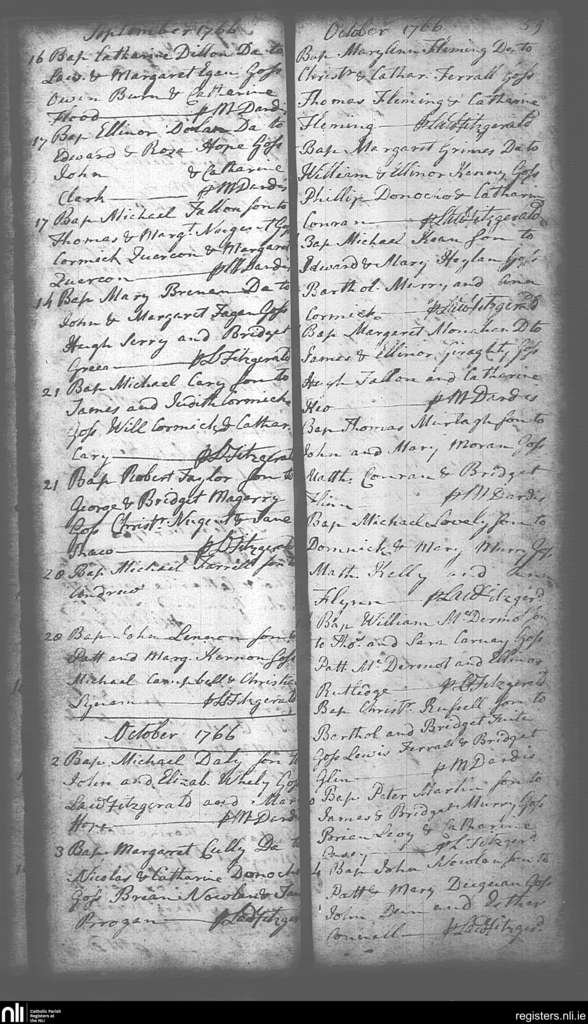 September 1766
16 Bap Catharine Dillon Da to
Law. & Margaret Egan Goss
Owen Burn & Catharine
Flood p M Dardis
17 Bap Ellinor Dolan Da to
Edward & Rose Hope Goss
John & Catharine
Clark p M Dardis
17 Bap Michael Fallon son to
Thomas & Margt. Nugent Go
Cormick Quercon & Margaret
Quercon p M Dardi
14 Bap Mary Brenan Da to
John & Margaret Fagan Goss
Hugh Serry and Bridget
Green p L Fitzgerald
21 Bap Michael Cary son to
James and Judith Cormick
Goss Will Cormick & Cathar
Cary p L Fitzgerald
21 Bap Robert Taylor son to
George & Bridget Magerry
Goss Christr. Nugent & Jane
Shaw p L Fitzgerald
20 Bap Michael Farrell son to
Andrew
20 Bap John Lennon son to
Patt and Marg. Kernon Goss
Michael Campbell & Christian
p L Fitzgerald
October 1766
2 Bap Michael Daly son to
John and Elizab. Whely Goss
Lawd Fitzgerald and Mar
p M Dardi
3 Bap Margaret Cully Da to
Nicolas & Catharine Donocho
Goss Brian Nowlan & Jan
Brogan p Lawd Fitzger
October 1766 59
Bap MaryAnn Fleming Da to
Christr. & Cathar. Ferrall Goss
Thomas Fleming & Catharine
Fleming p Lawd Fitzgerald
Bap Margaret Grimes Da to
William & Ellinor Kenny Goss
Phillip Donocio & Catharin
Conran p Lawd Fitzgerald
Bap Michael Koan son to
Edward & Mary Hoylan Goss
Barthol. Murry and Ann
Cormick p Lawd Fitzgerald
Bap Margaret Monahan D to
James & Ellinor Geraghty Goss
Hugh Fallon and Catharine
p M Dardis
Bap Thomas Murtagh son to
John and Mary Moran Goss
Matth. Conran & Bridget
Flin p M Dardis
Bap Michael Lovely son to
Dominick & Mary Murry Gos
Math. Kelly and Ann
p Lawd Fitzgerd
Bap William McDermot son
to Thos. and Sara Carney Goss
Patt McDermot and Ellinor
Rutledge p L Fitzgerald
Bap Christr. Russell son to
Barthol and Bridget
Goss Lewis Ferrall & Bridget
Glin p M Dardis
Bap Peter Martin son to
James & Bridget Murry Goss
Brian Levy & Catharine
Casey p L Fitzgerd
Bap John Nowlan son to
Patt & Mary Deegnan Goss
John Dun and Esther
Connell p Lawd Fitzgerd.
nli
Catholic Parish
Registers at
the NLI
registers.nli.ie